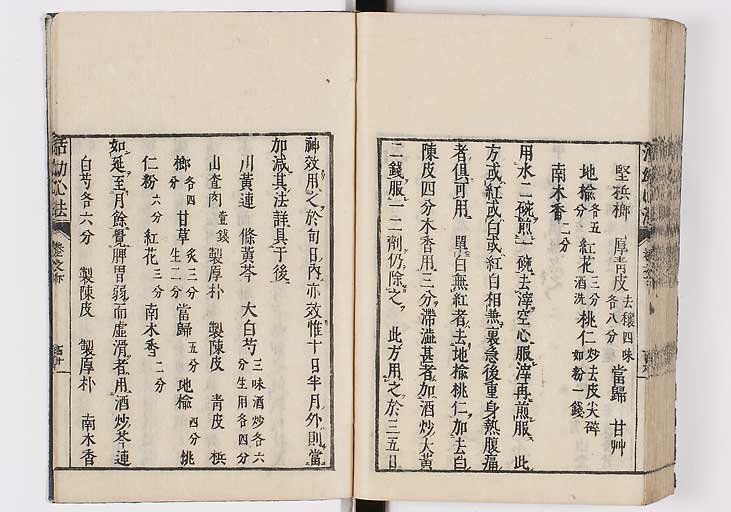 堅梹榔 厚青皮 去穰四味各八分 當歸 甘艸
地榆 各五分 紅花 三分酒洗 桃仁 炒去皮尖碎如粉一錢
南木香 二分
用水二碗煎一碗去滓空心服滓再煎服 此
方或紅或白或紅白相兼裏急後重身熱腹痛
者俱可用 單白無紅者去地榆桃仁加去白
陳皮四分木香用三分滯澁甚者加酒炒大黃
二錢服一二劑仍除之 此方用之於三五日
神效用之於旬日內亦效惟十日半月外則當
加減其法詳具于後
川黃連 條黃芩 大白芍 三味酒炒各六分生用各四分
山查肉 壹錢 製厚朴 製陳皮 青皮 梹
榔 各四分 甘草 炙三分生二分 當歸 五分 地榆 四分 桃
仁粉 六分 紅花 三分 南木香 二分
如延至月餘覺脾胃弱而虛滑者用酒炒芩連
白芍各六分 製陳皮 製厚朴 南木香
活幼心法